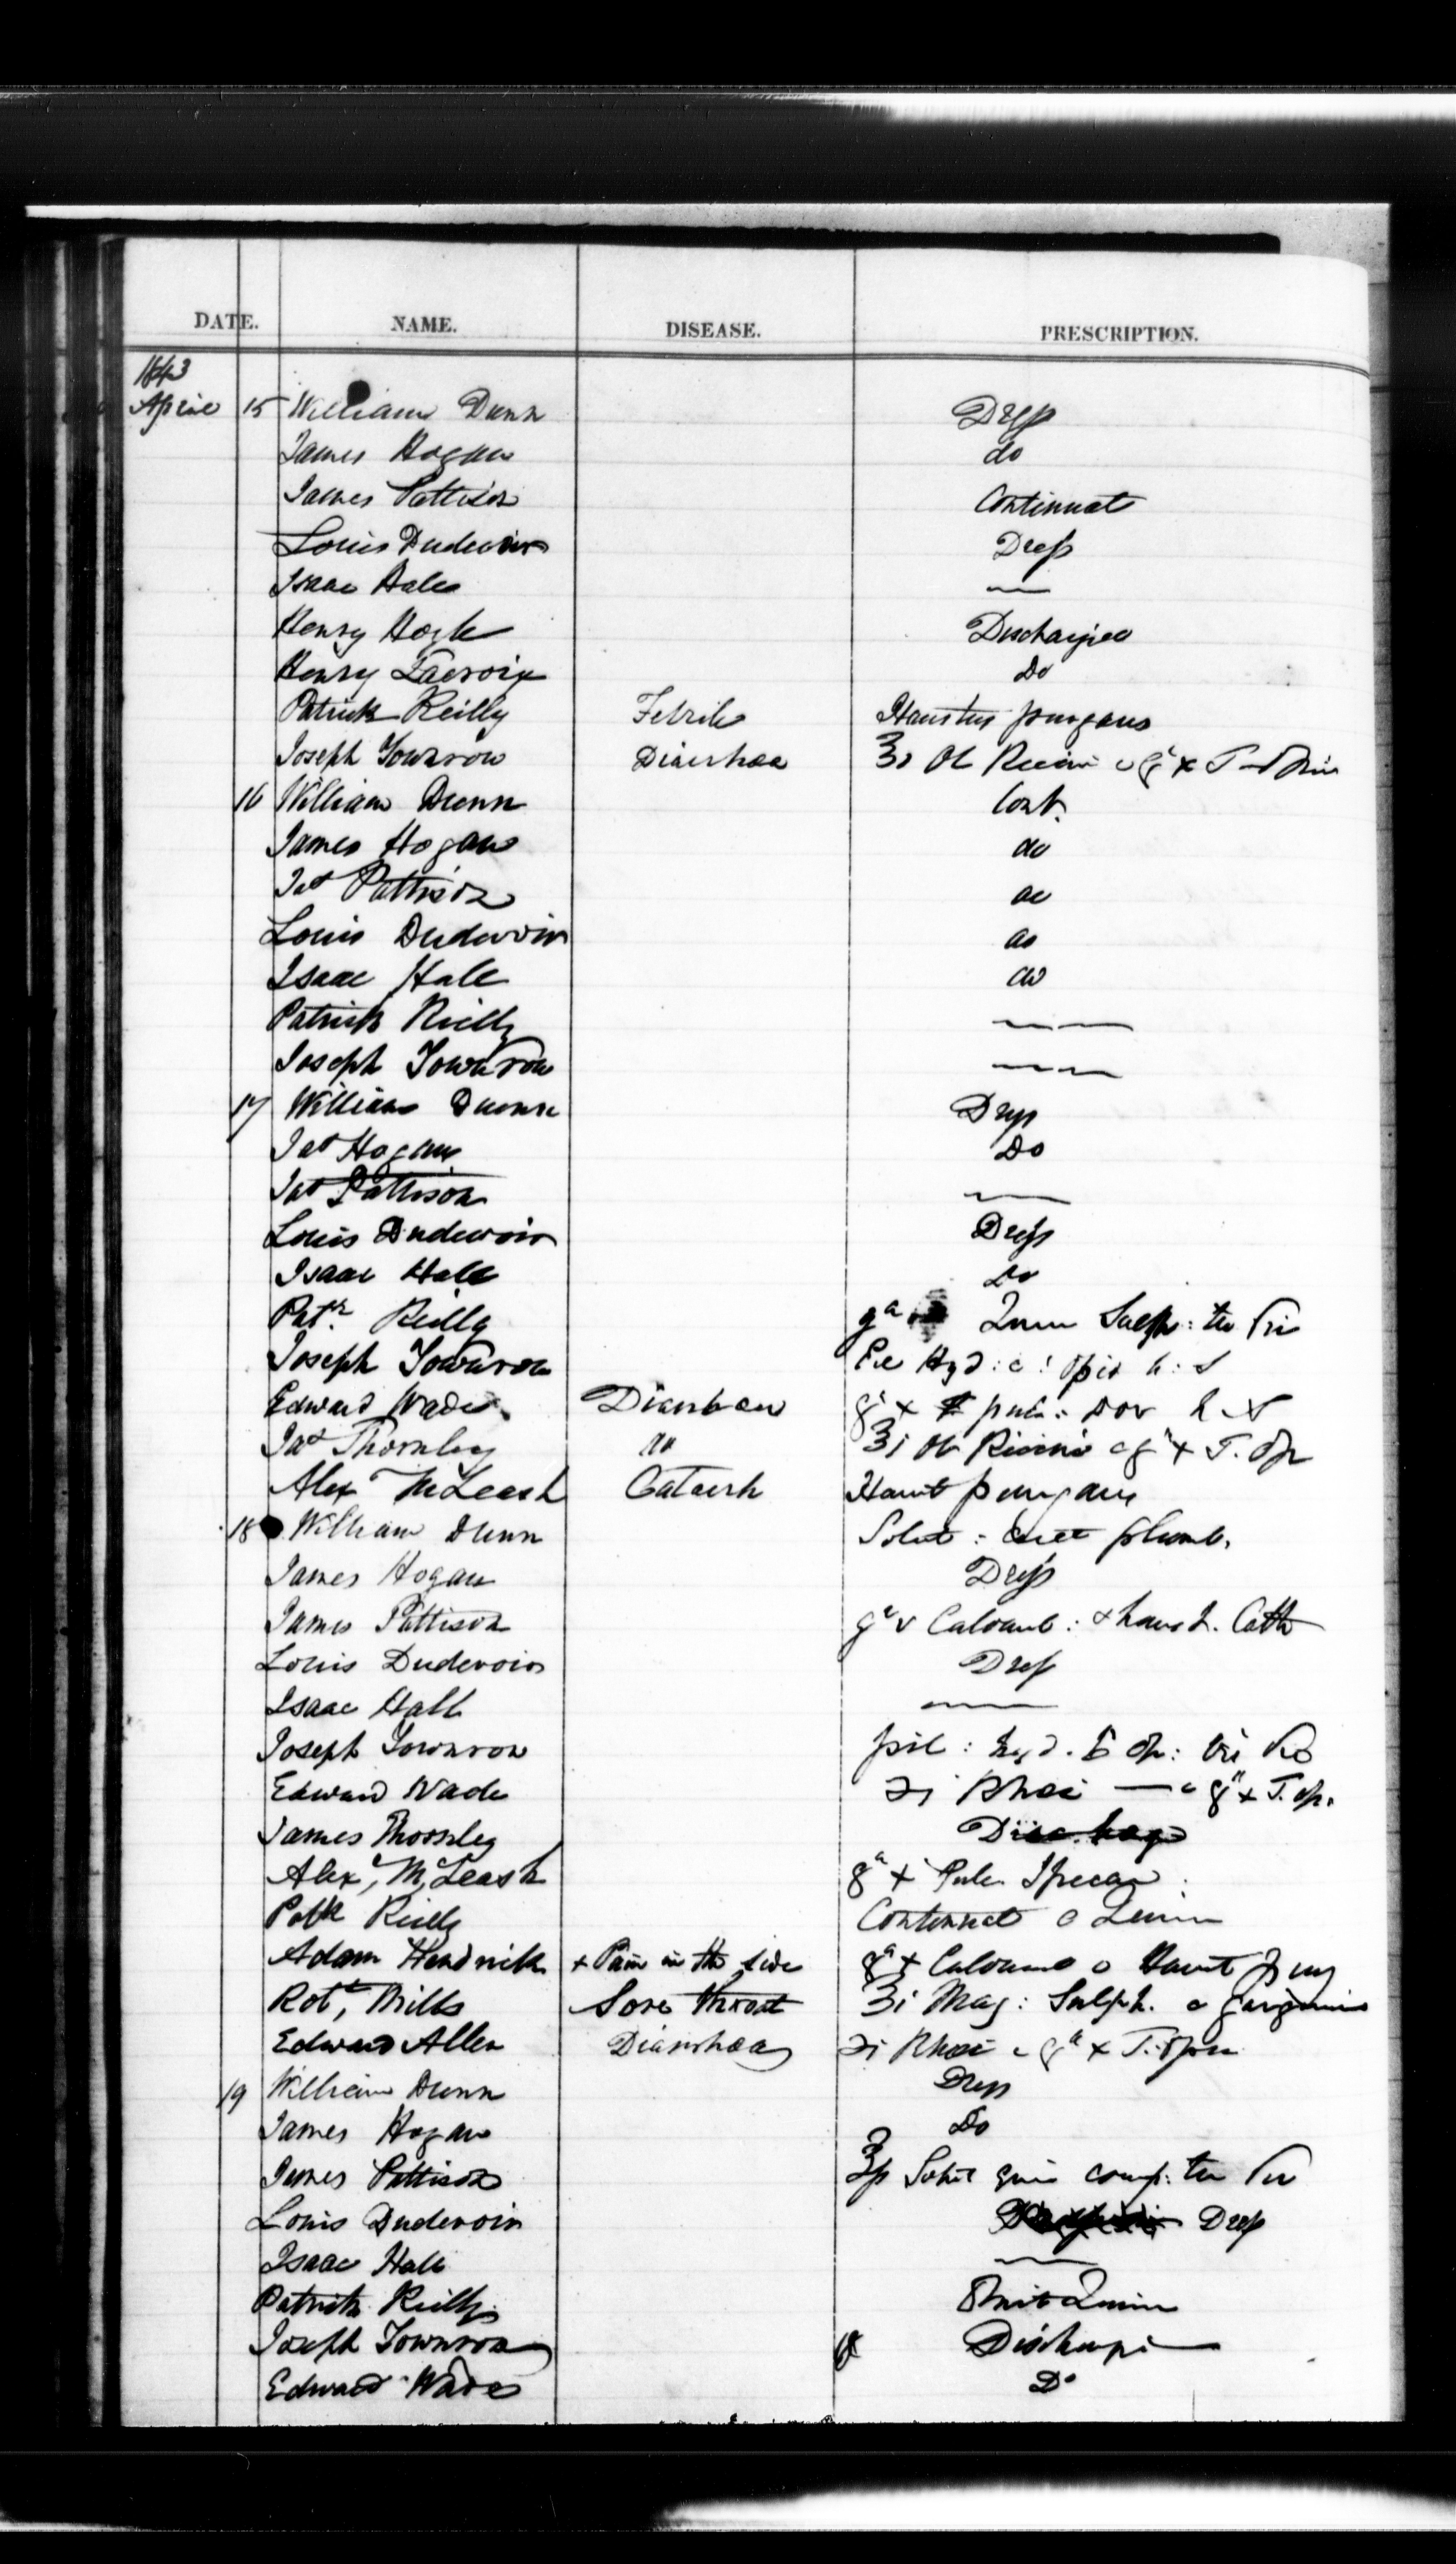 DATE. NAME. DISEASE. PRESCRIPTION.
1843
April 15 William Dunn Dress
James Hogan do
James Pattison Continuat
Louis Dudevoir Dress
Isaac Hale
Henry Hogle Discharged
Henry Lacroix Do
Patrick Reilly Febrile Haustus purgans
Joseph Townrow Diarrhoea ʒi Ol Ricini c gr x T Opii
16 William Dunn Cont.
James Hogan do
Jas Pattison do
Louis Dudevoir do
Isaac Hall do
Patrick Reilly
Joseph Townrow
17 William Dunn Dress
Jas Hogan Do
Jas Pattison
Louis Dudevoir Dress
Isaac Hall Do
Patk Reilly Quin Sulph: ter
Joseph Townrow Hyd: c: Opio h: s
Edward Wade Diarrhoea gr x pulv: Dov h s
Jas Thornley do ʒi Ol Ricini c gr x T. Op
Alex McLeash Catarrh Haust purgans
18 William Dunn Solut: acet plumb.
James Hogan Dress
James Pattison gr v Calomel: & haust. Cath
Louis Dudevoir Dress
Isaac Hall
Joseph Townrow pil: hyd. c op:
Edward Wade ℈i Rhei c gr x T. op.
James Thornley
Alex, McLeash gr x Pulv Ipecac
Patk Reilly Continuat c Quin
Adam Hendrick + Pain in the side gr x Calomel c Haust purg
Robt, Mills Sore throat ʒi Mag: Sulph. c gargarism
Edward Allen Diarrhoea ℈i Rhei c gr x T. Opii
19 William Dunn Dress
James Hogan Do
James Pattison Solut quin comp: ter
Louis Dudevoir Dress
Isaac Hall
Patrick Reilly Omit Quin
Joseph Townrow Discharged
Edward Wade Do